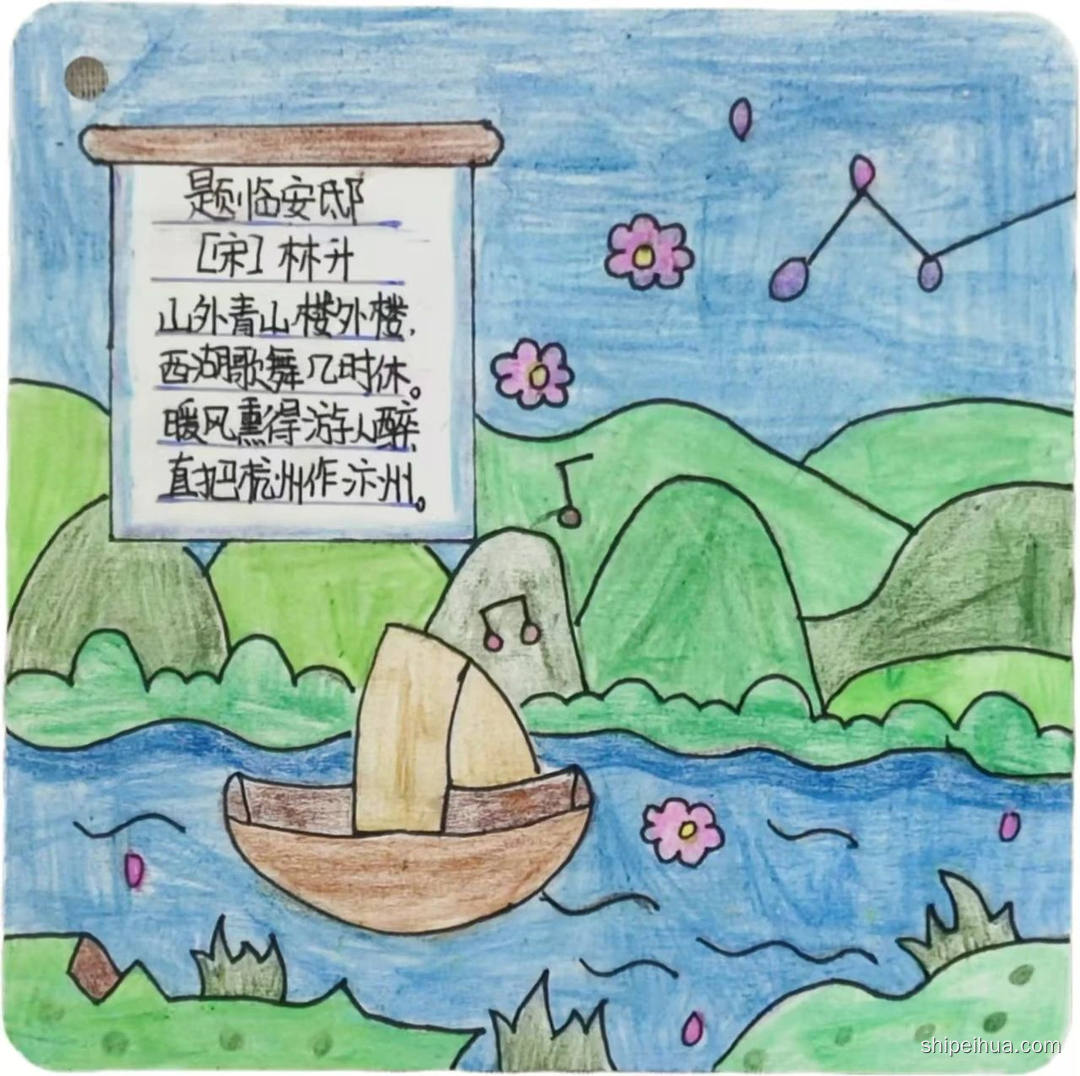 题临安邸
[宋] 林升
山外青山楼外楼,
西湖歌舞几时休。
暖风熏得游人醉,
直把杭州作汴州。
shipeihua.com